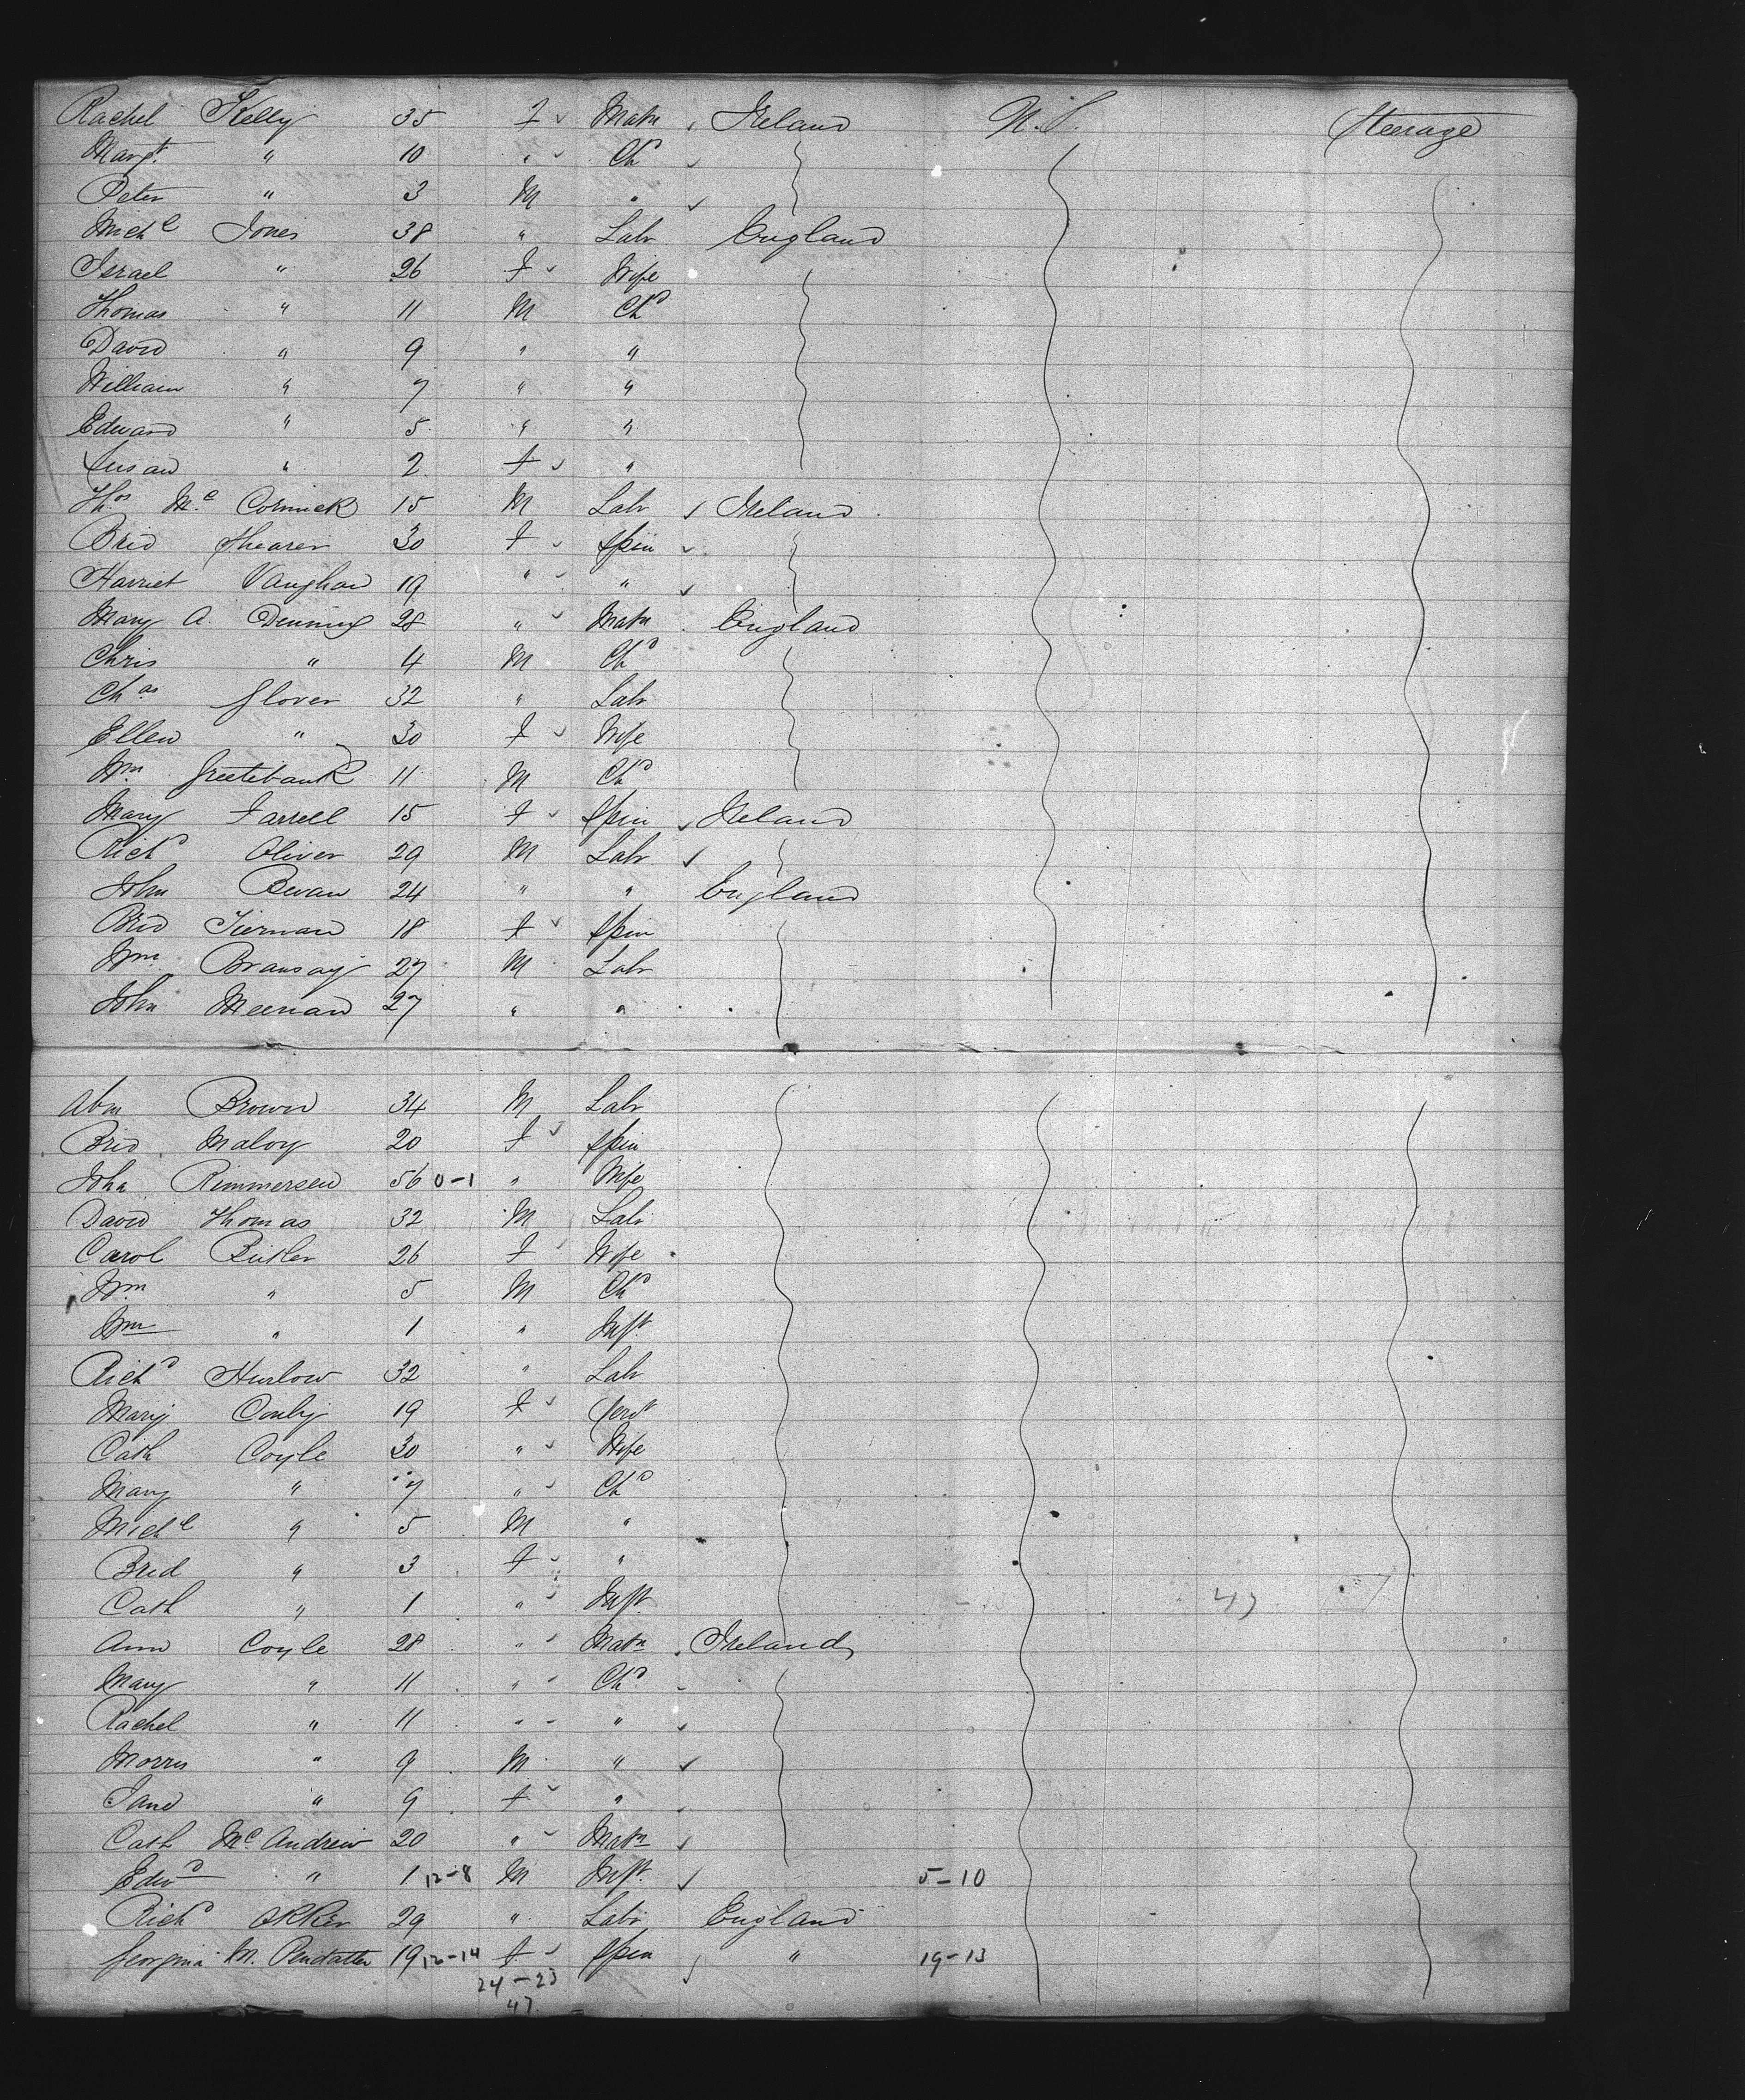 Rachel Kelly 35 F Matn Ireland U.S. Steerage
Margt " 10 " Chd
Peter " 3 M "
Michl Jones 38 " Labr England
Israel " 26 F Wife
Thomas " 11 M Chd
David " 9 " "
William " 7 " "
Edward " 5 " "
Susan " 2 F "
Thos Mc Cormick 15 M Labr Ireland
Brid Shearer 30 F Spin
Harriet Vaughan 19 " "
Mary A. Denning 28 " Matn England
Chris " 4 M Chd
Chas Glover 32 " Labr
Ellen " 30 F Wife
Wm 11 M Chd
Mary Farrell 15 F Spin Ireland
Richd Oliver 29 M Labr
John 24 " " England
Brid Tiernan 18 F Spin
Wm 27 M Labr
John Meenan 27 " "
Abm Brown 34 M Labr
Brid Maloy 20 F Spin
John 56 0-1 " Wife
David Thomas 32 M Labr
Carol Butler 26 F Wife
Wm " 5 M Chd
Wm " 1 " Inft
Richd Hurlow 32 " Labr
Mary 19 F Servt
Cath Coyle 30 " Wife
Mary " 7 " Chd
Michl " 5 M "
Brid " 3 F "
Cath " 1 " Inft 47
Ann Coyle 28 " Matn Ireland
Mary " 11 " Chd
Rachel " 11 " "
Morris " 9 M "
Jane " 9 F "
Cath Mc Andrew 20 " Matn
Edwd " 1 12-8 M Inft 5-10
Richd Akker 29 " Labr England
Georgina M. 19 12-14 F Spin " 19-13
24-23
47